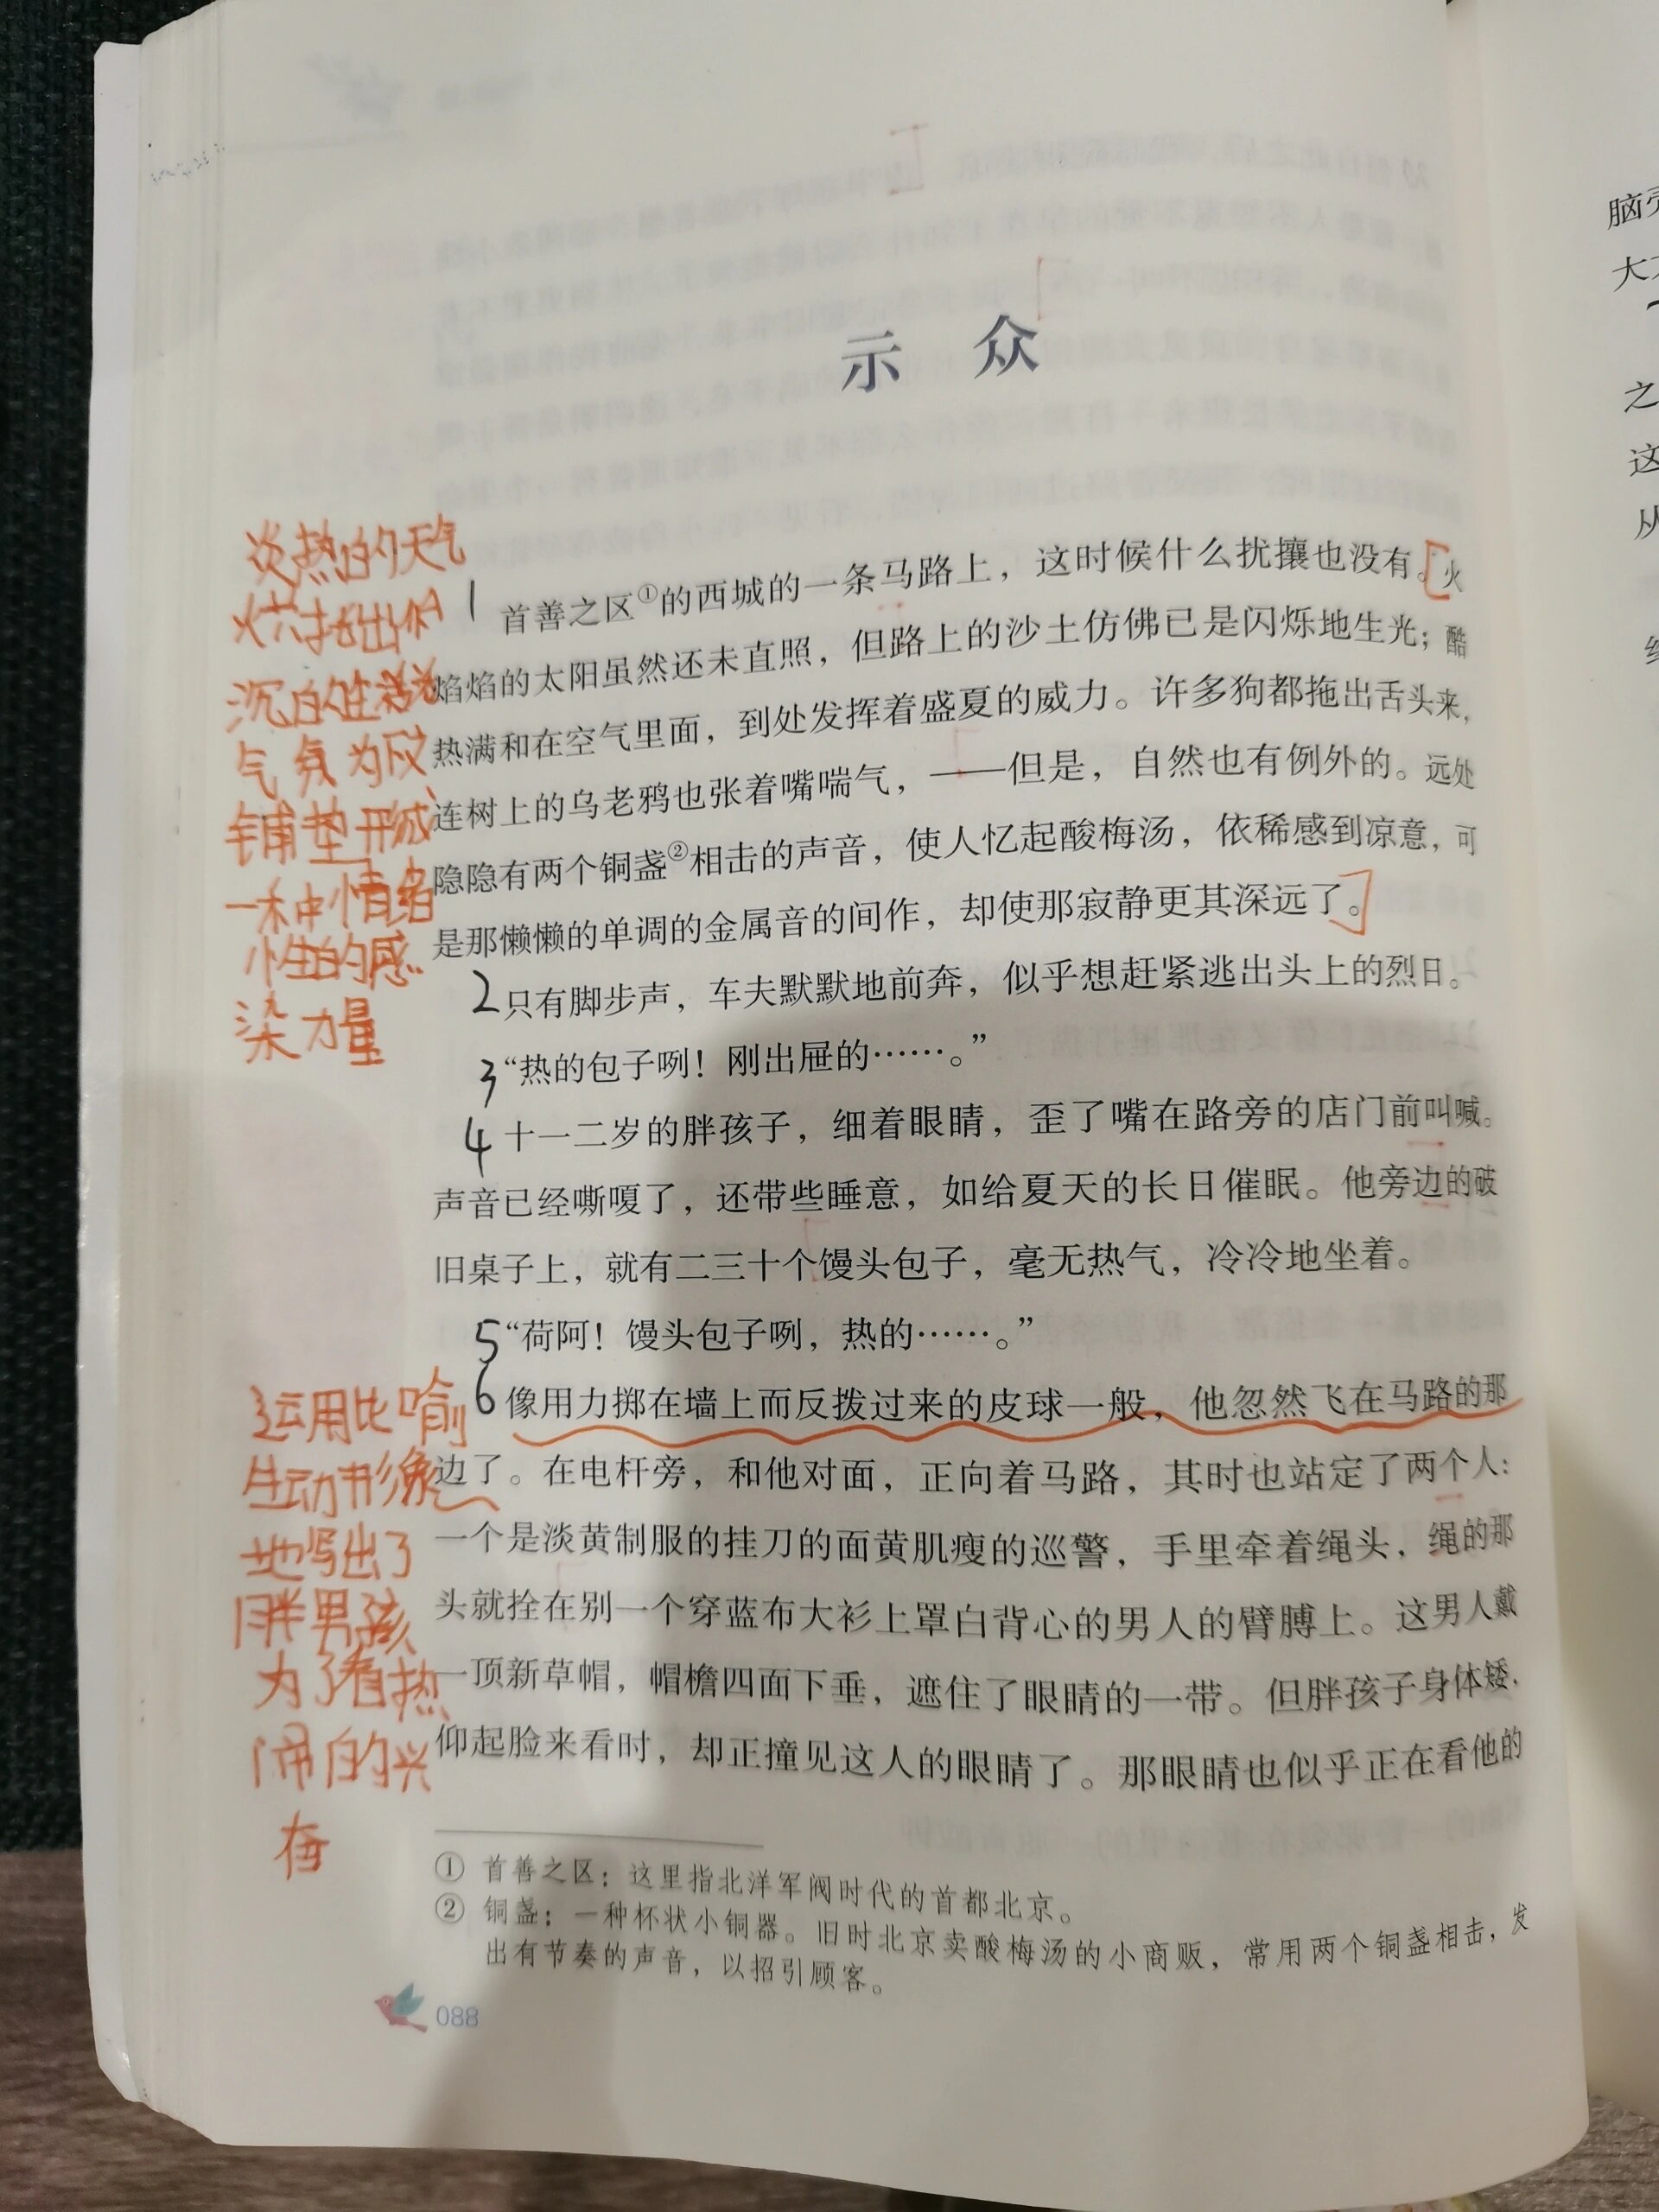 示 众
炎热的天气
烘托出低
沉的生活
气氛为下文
铺垫形成
一种情绪
性的感
染力量
1 首善之区①的西城的一条马路上，这时候什么扰攘也没有。火
焰焰的太阳虽然还未直照，但路上的沙土仿佛已是闪烁地生光；酷
热满和在空气里面，到处发挥着盛夏的威力。许多狗都拖出舌头来，
连树上的乌老鸦也张着嘴喘气，——但是，自然也有例外的。远处
隐隐有两个铜盏②相击的声音，使人忆起酸梅汤，依稀感到凉意，可
是那懒懒的单调的金属音的间作，却使那寂静更其深远了。
2 只有脚步声，车夫默默地前奔，似乎想赶紧逃出头上的烈日。
3 “热的包子咧！刚出屉的……。”
4 十一二岁的胖孩子，细着眼睛，歪了嘴在路旁的店门前叫喊。
声音已经嘶嗄了，还带些睡意，如给夏天的长日催眠。他旁边的破
旧桌子上，就有二三十个馒头包子，毫无热气，冷冷地坐着。
5 “荷阿！馒头包子咧，热的……。”
6 像用力掷在墙上而反拨过来的皮球一般，他忽然飞在马路的那
边了。在电杆旁，和他对面，正向着马路，其时也站定了两个人：
一个是淡黄制服的挂刀的面黄肌瘦的巡警，手里牵着绳头，绳的那
头就拴在别一个穿蓝布大衫上罩白背心的男人的臂膊上。这男人戴
一顶新草帽，帽檐四面下垂，遮住了眼睛的一带。但胖孩子身体矮，
仰起脸来看时，却正撞见这人的眼睛了。那眼睛也似乎正在看他的
运用比喻
生动形象
地写出了
胖男孩
为了看热
闹的兴
奋
① 首善之区：这里指北洋军阀时代的首都北京。
② 铜盏：一种杯状小铜器。旧时北京卖酸梅汤的小商贩，常用两个铜盏相击，发
出有节奏的声音，以招引顾客。
088
脑壳
大
之
这
从